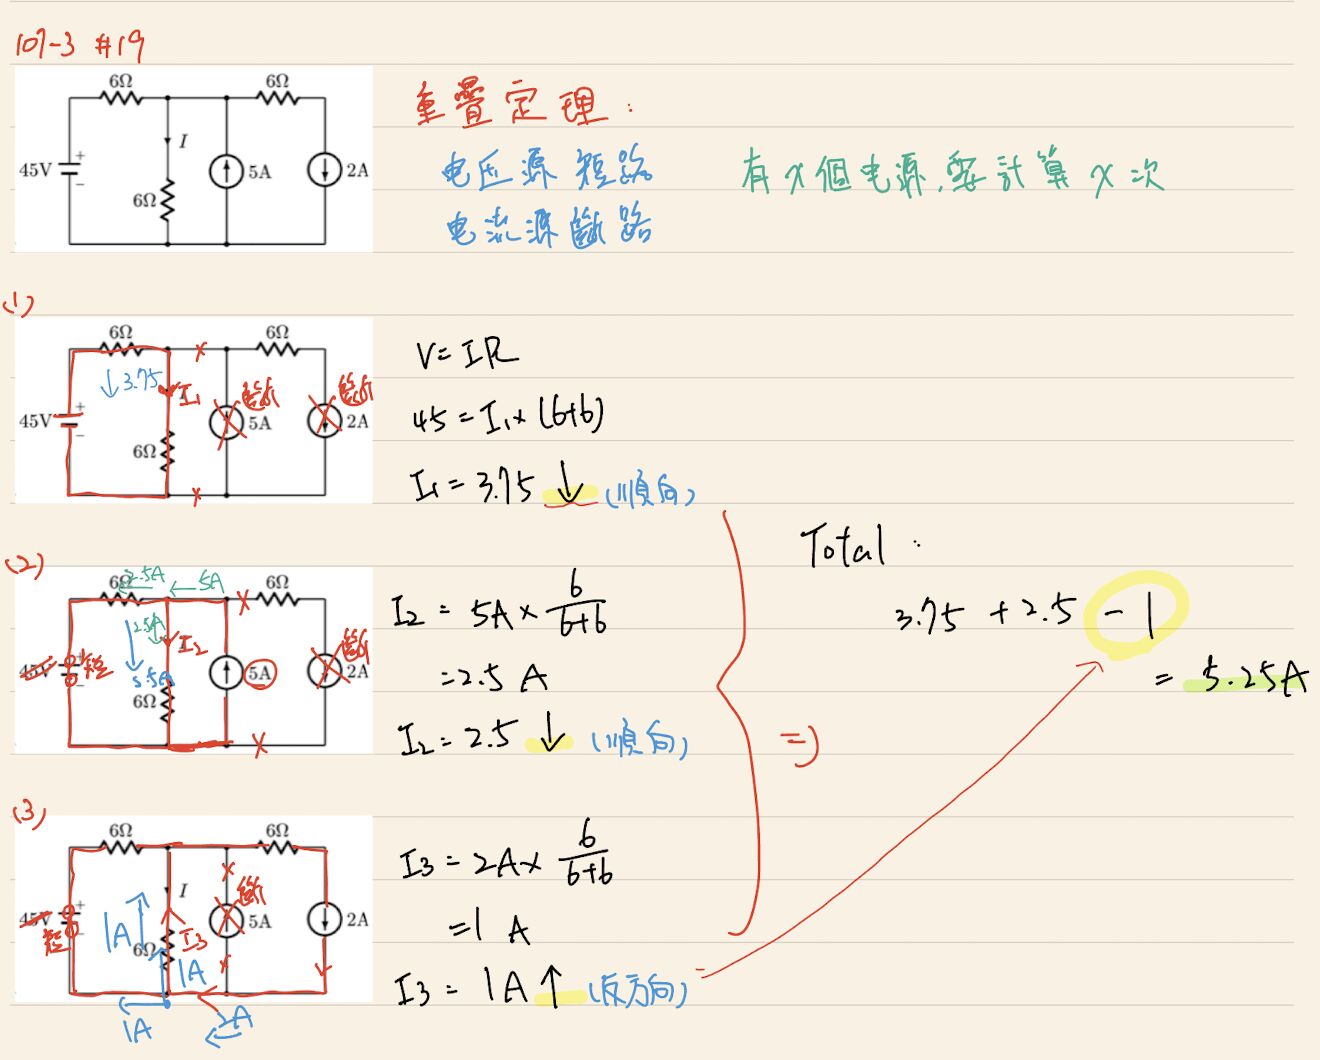 107-3 #19
6Ω 6Ω
45V + − I 6Ω 5A 2A
重疊定理:
电压源 短路
电流源 斷路
有x個电源,要計算x次
(1)
6Ω 6Ω
↓3.75 I₁ 斷 斷
45V + − 6Ω 5A 2A
V=IR
45=I₁×(6+6)
I₁=3.75 ↓ (順向)
(2)
6Ω 2.5A ←5A 6Ω
2.5A I₂ 斷
45V + − 短 5A 2A
6Ω
I₂ = 5A × 6/(6+6)
=2.5 A
I₂=2.5 ↓ (順向)
(3)
6Ω 6Ω
45V + − 短 I 斷 5A 2A
1A 6Ω I₃
1A
1A 2A
I₃ = 2A× 6/(6+6)
=1 A
I₃ = 1A ↑ (反方向)
=>
Total:
3.75 +2.5 −1
= 5.25A